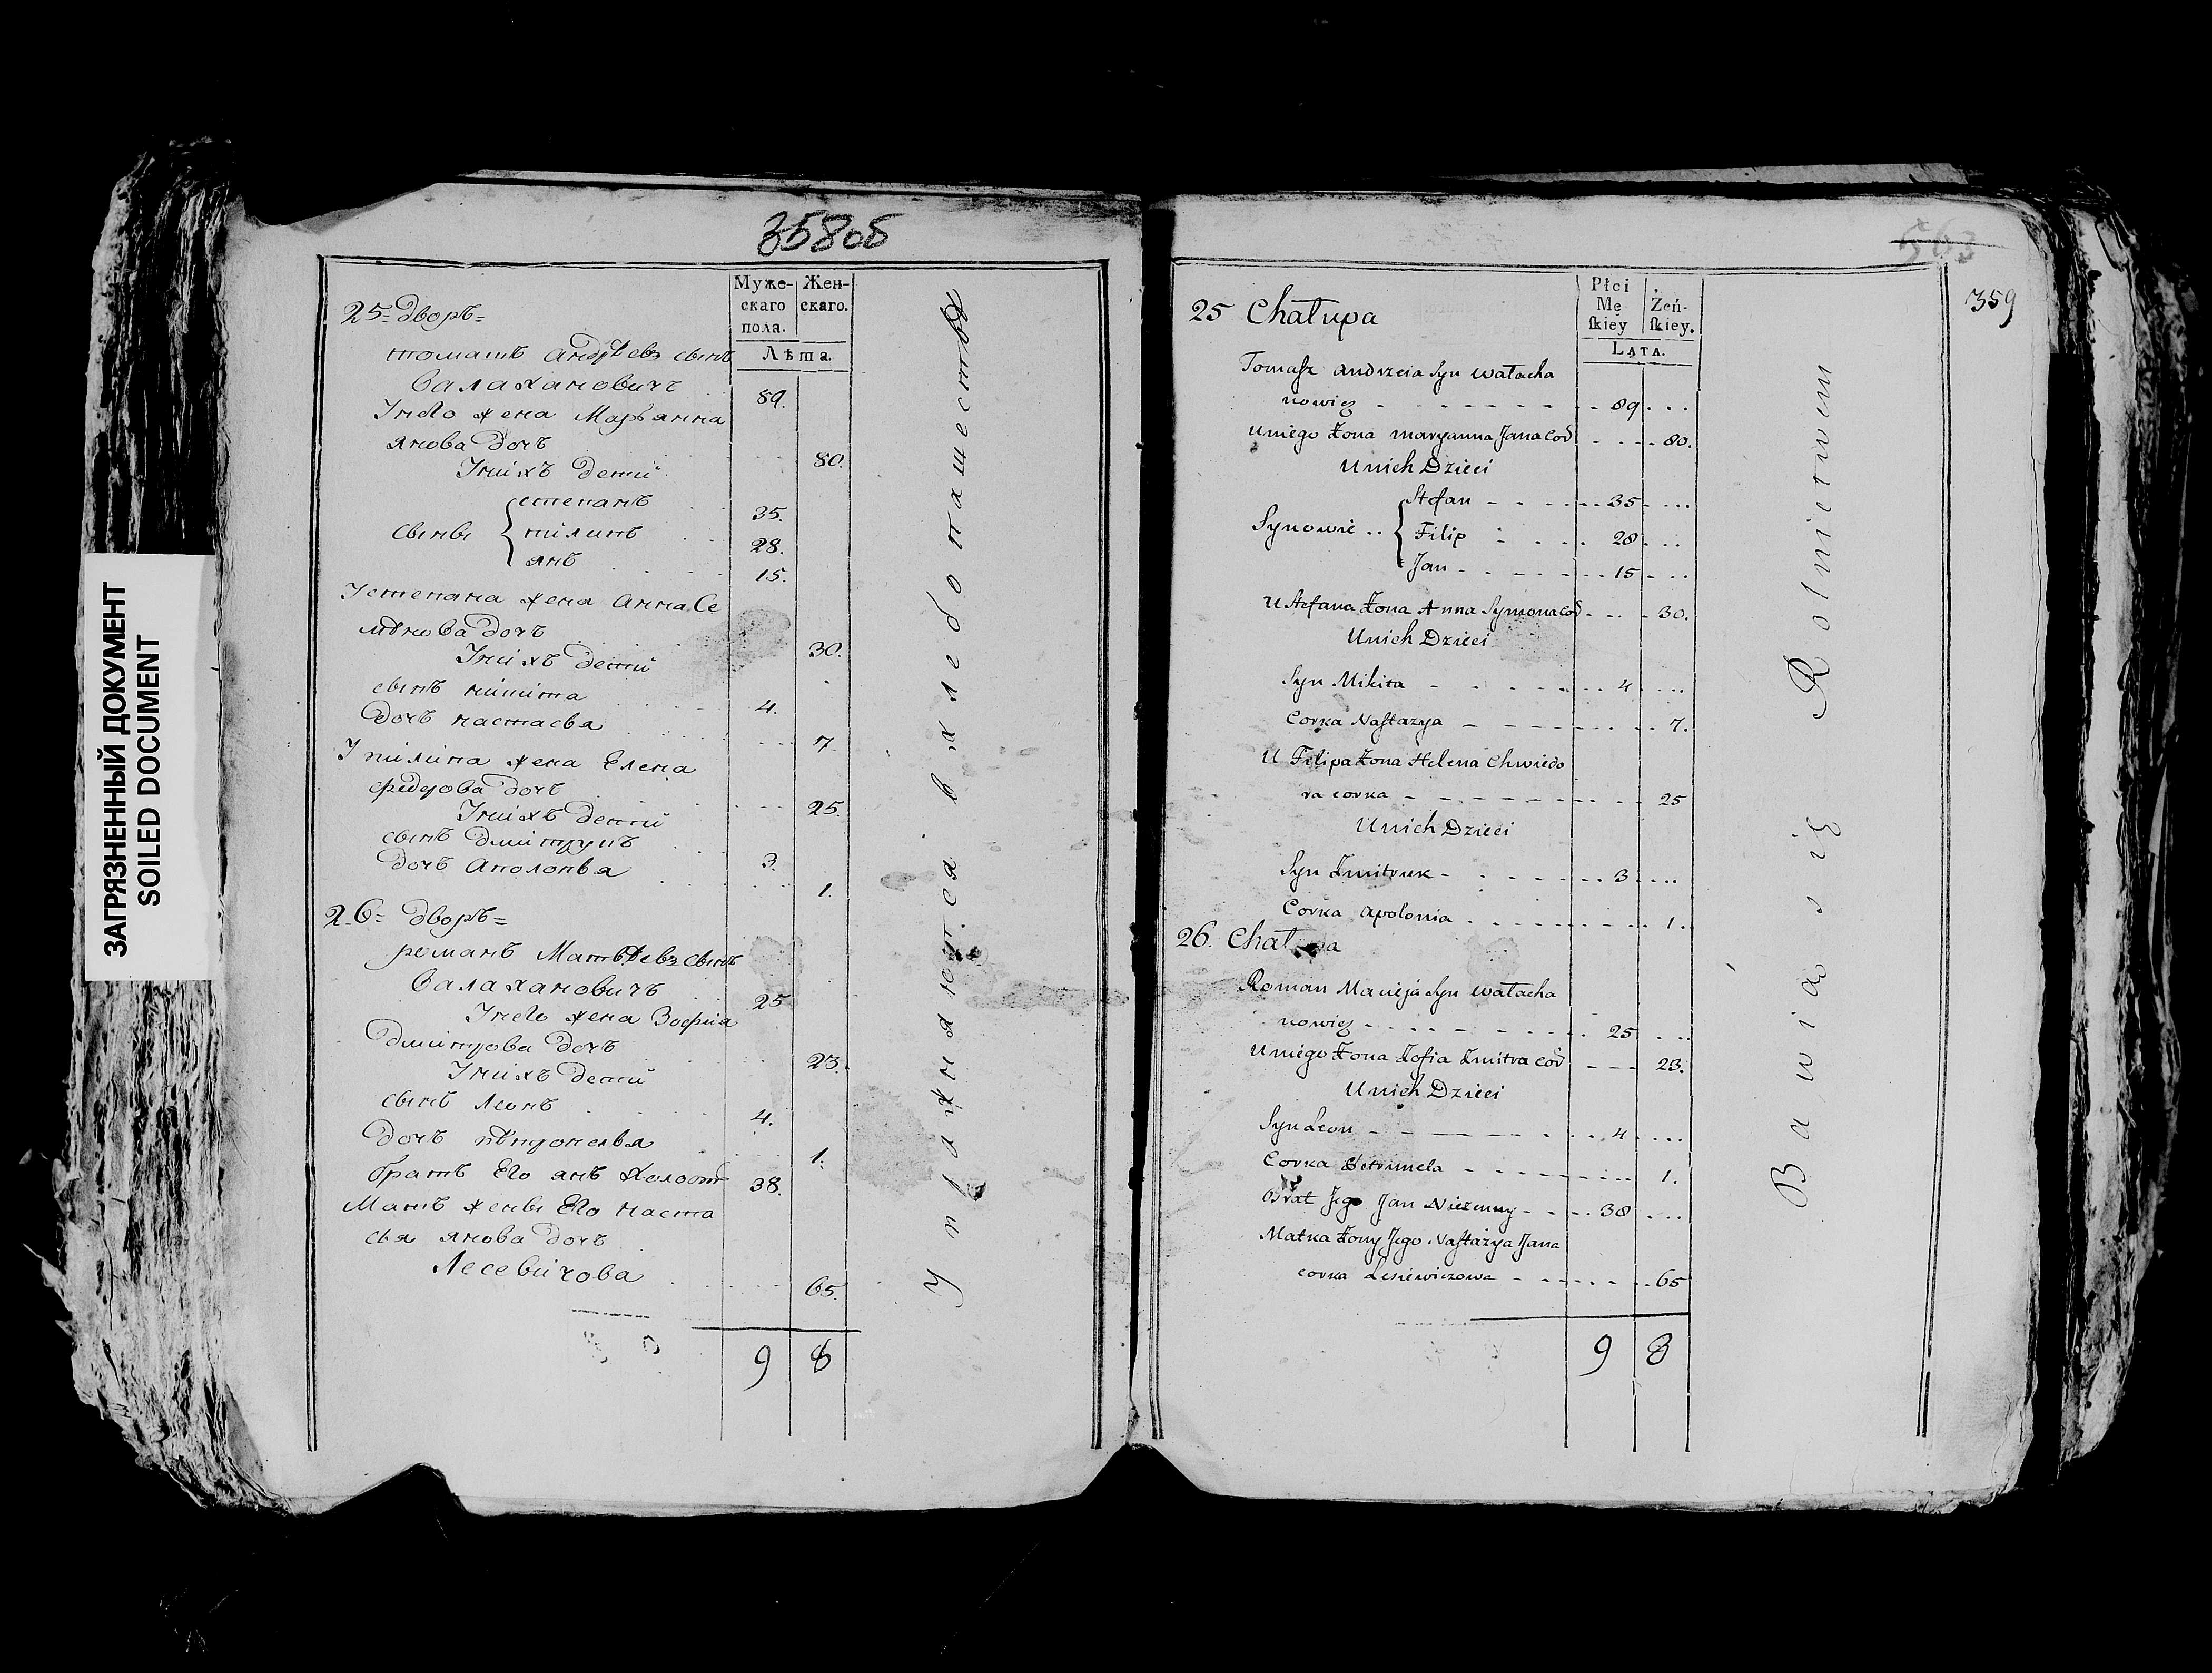 ЗАГРЯЗНЕННЫЙ ДОКУМЕНТ
SOILED DOCUMENT
358об
Муже-
скаго
пола.
Жен-
скаго.
Лѣта.
25= Дворъ=
томашъ андрѣевъ сынъ
Валахановичъ 89.
Унего жена Марьянна
янова дочь 80.
Унихъ дети
сыны
степанъ 35.
пилипъ 28.
янъ 15.
Устепана жена анна Се
мѣнова дочь 30.
Унихъ дети
сынъ никита 4.
дочь настасья 7
У пилипа жена Елена
федорова дочь 25.
Унихъ дети
сынъ дмитрукъ 3.
дочь аполонья 1.
26= дворъ=
романъ Матвѣевъ сынъ
Валахановичъ 25
Унего жена Зофия
дмитрова дочь 23.
Унихъ дети
сынъ леонъ 4.
дочь пѣтронелья 1.
братъ Его янъ холост 38.
Мать жены Его наста
сья янова дочь
Лесевичова 65.
9 8
Упражняются в хлебопашестве
563
359
Płci
Mę
ſkiey
Żeń-
ſkiey.
Lata.
25 Chałupa
Tomaſz andrzeia Syn wałacha
nowicz 89
Uniego Żona maryanna Jana Cor 80.
Unich Dzieci
Synowie
Stefan 35
Filip 28
Jan 15
U Stefana Żona Anna Symona Cor 30.
Unich Dzieci
Syn Mikita 4
Corka Naſtazya 7.
U Filipa Żona Helena Chwiedo
ra corka 25
Unich Dzieci
Syn Zmitruk 3
Corka apolonia 1.
26. Chałupa
Roman Macieja Syn wałacha
nowicz 25
Uniego Żona Zofia Zmitra cor 23.
Unich Dzieci
Syn Leon 4
Corka Petrunela 1.
Brat Jego Jan Nieżenny 38
Matka Żony Jego Naſtazya Jana
corka Lesiewiczowa 65
9 8
Bawią się Rolnictwem